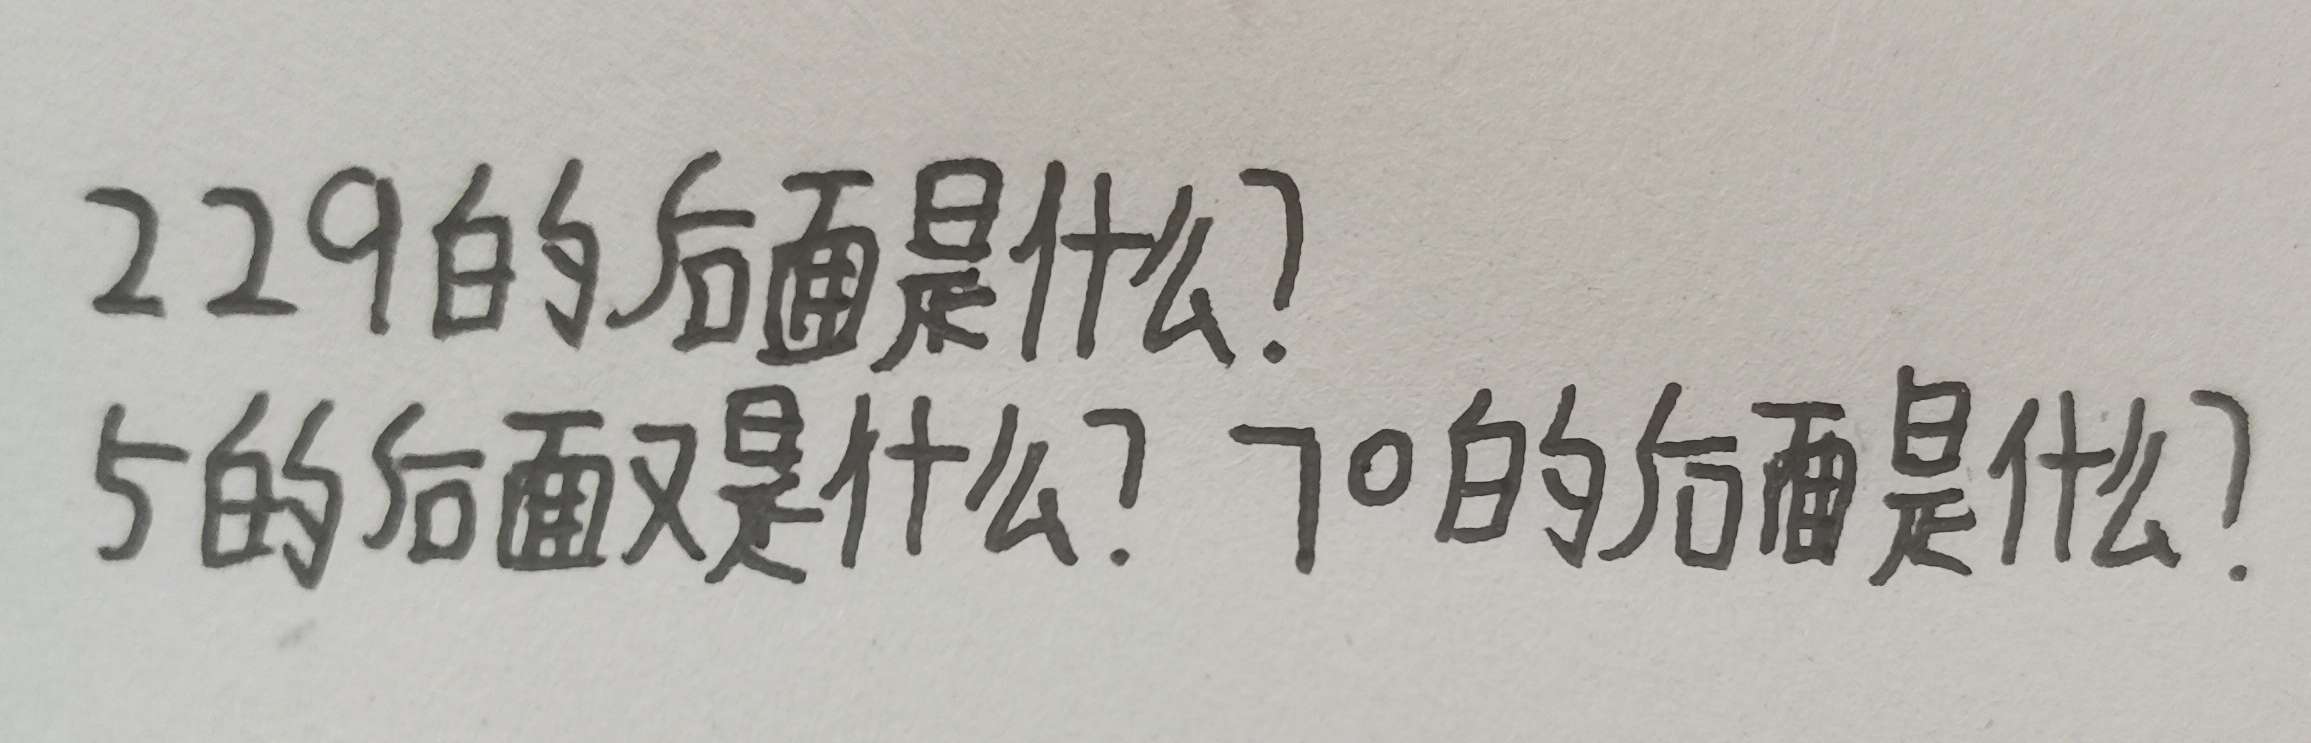 229的后面是什么?
5的后面又是什么? 70的后面是什么?